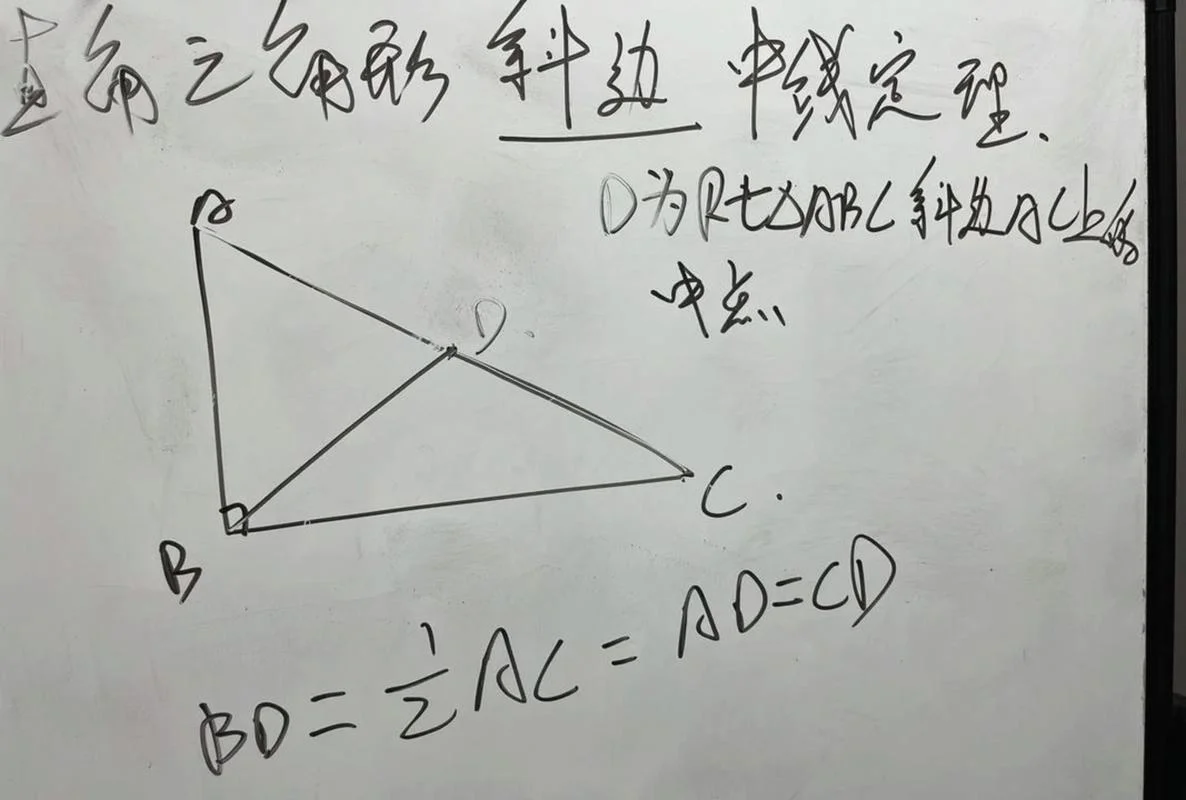 直角三角形斜边中线定理.
D为Rt△ABC斜边AC上的
中点
A
D.
C.
B
BD=½AC=AD=CD